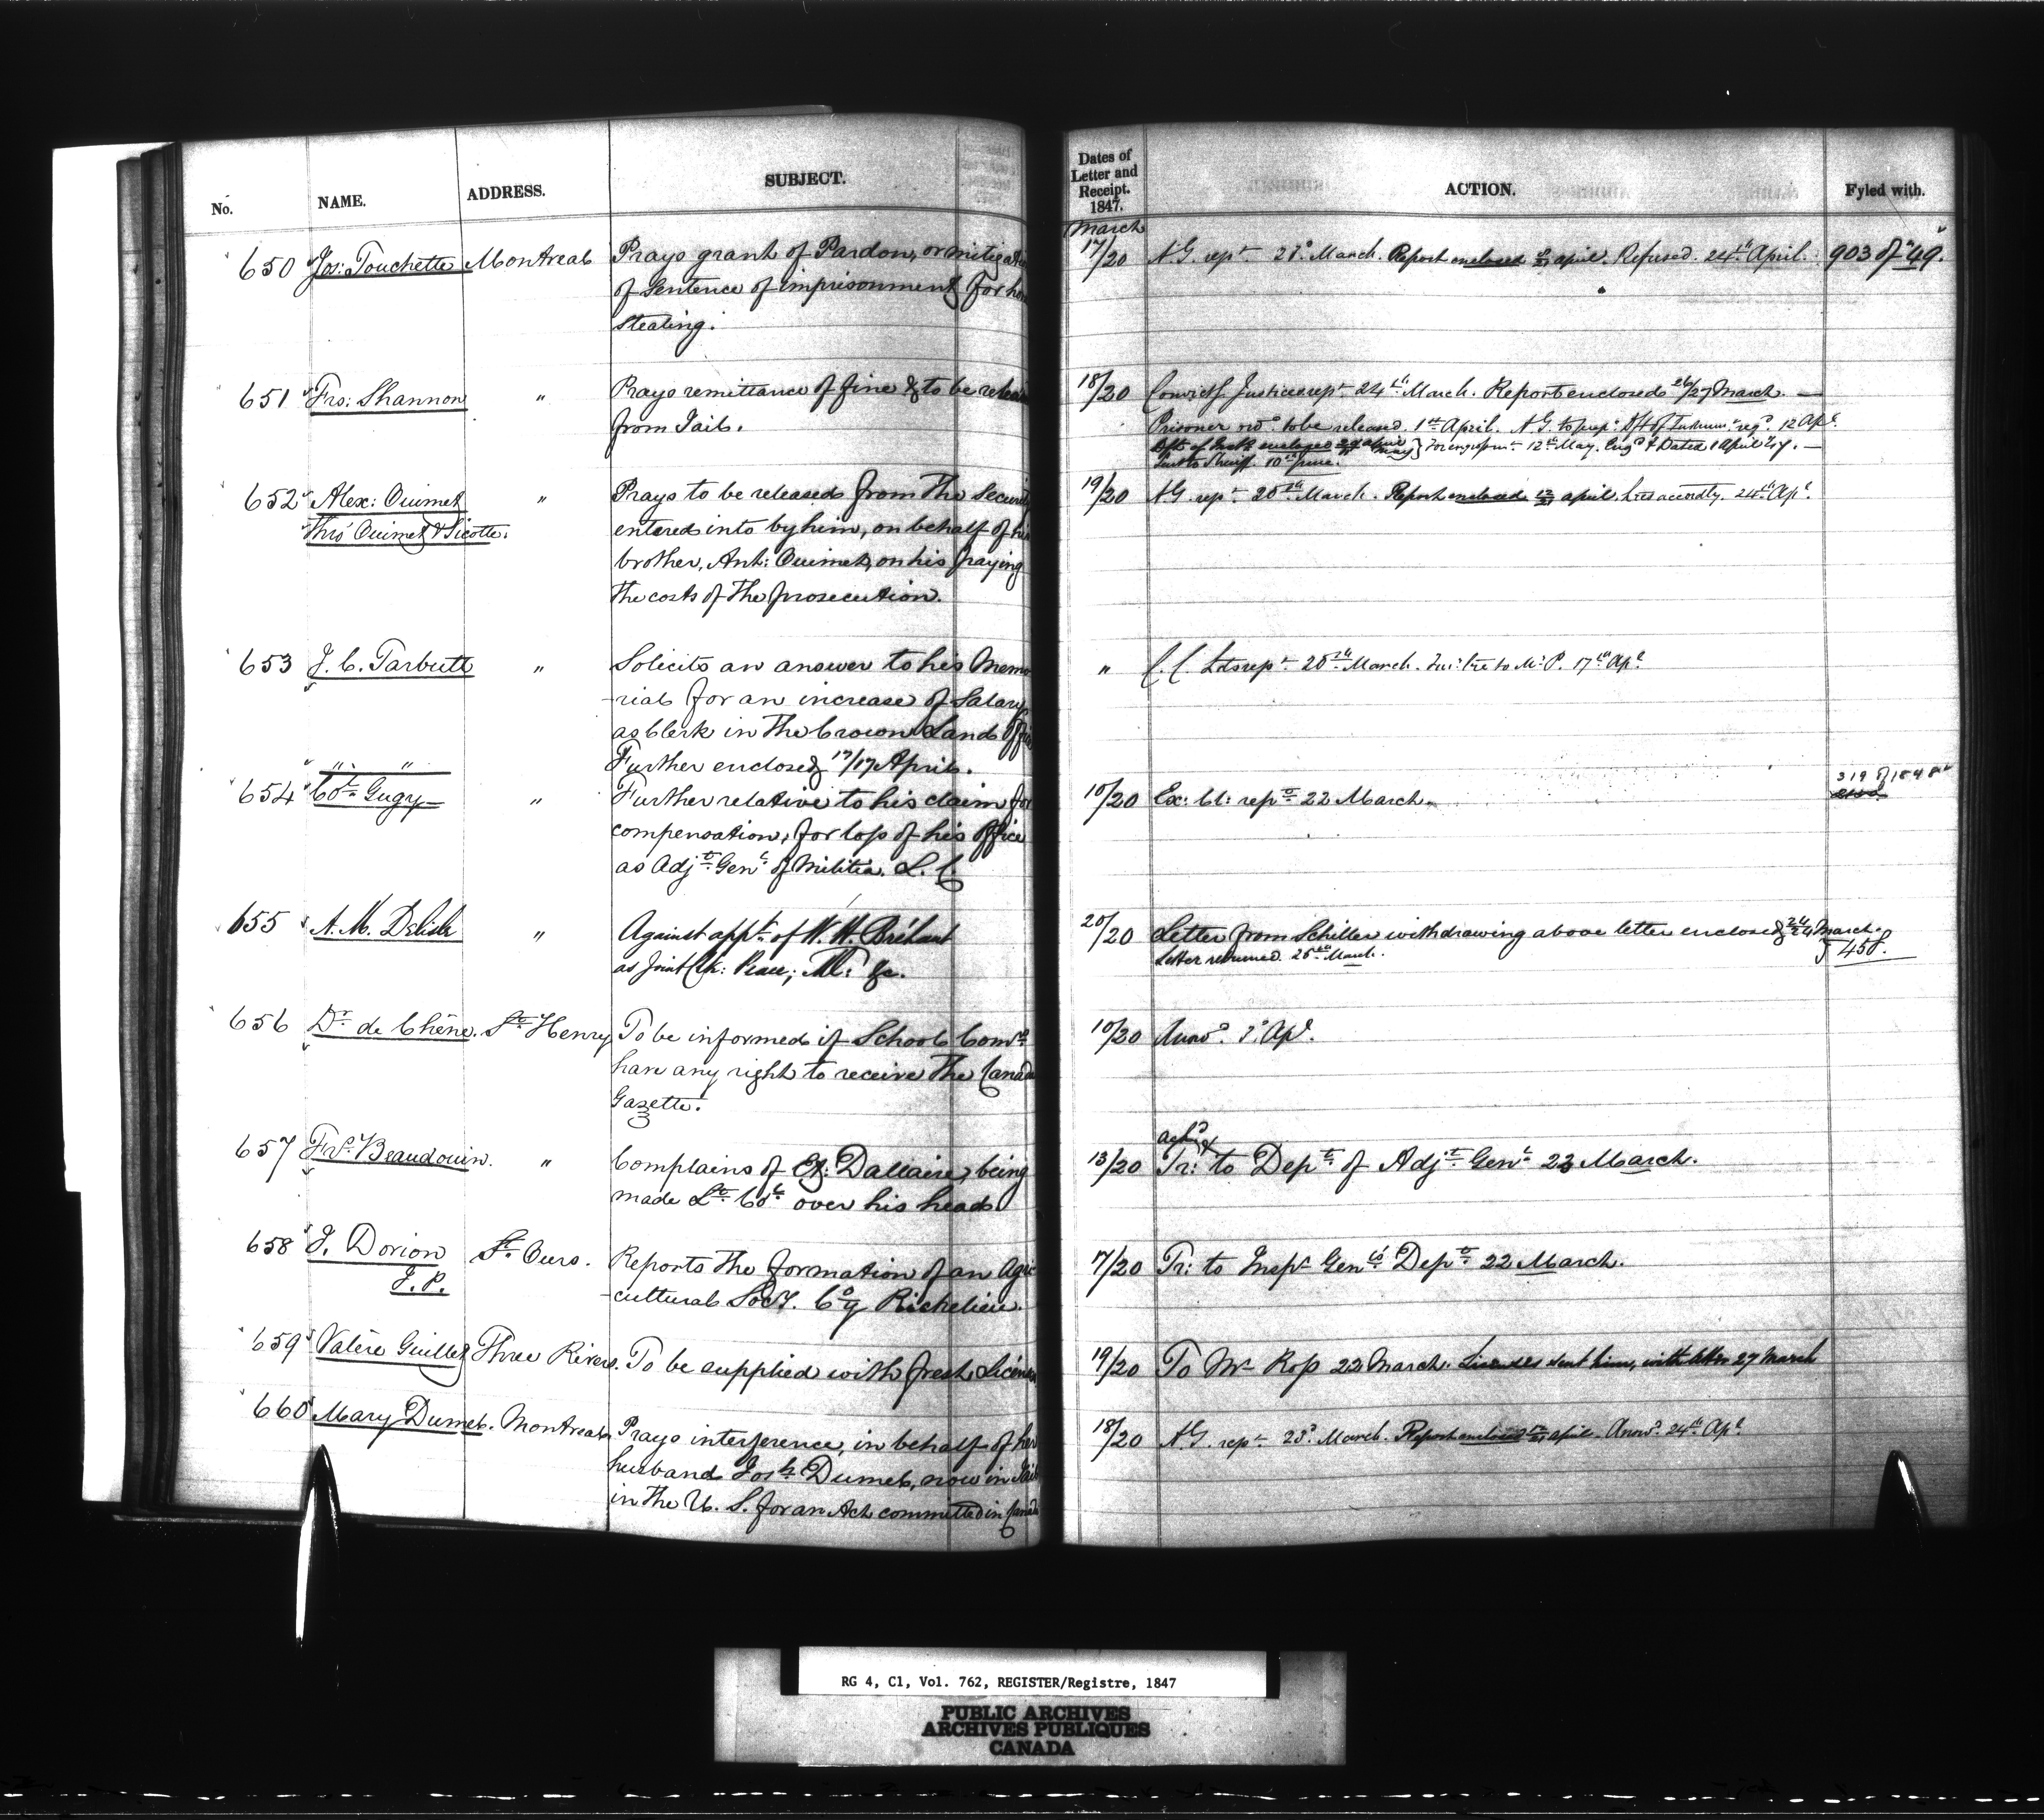 No. NAME. ADDRESS. SUBJECT. Dates of Letter and Receipt. 1847. ACTION. Fyled with.
March
650 Jos: Touchette Montreal Prays grant of Pardon, or mitigati 17/20 A.G. rept. 23d March. Report enclosed april. Refused. 24th April. 903 of "49.
of Sentence of imprisonment for ho
stealing.
651 Frs: Shannon " Prays remittance of fine & to be releas 18/20 Convictg. Justices rept. 24th March. Report enclosed 26/27 March. —
from Jail. Prisoner ord. to be released. 1st April. A.G. to prep. Dft of Instrum. reqd. 12 Apl.
Dft. of Inst. enclosed May } For engrossmt. 12th May. Engd & Dated 1 April /47. —
Sent to Sheriff. 10th June.
652 Alex: Ouimet " Prays to be released from the Securit 19/20 A.G. rept. 25th March. Report enclosed april. Lres accordly. 24th Apl.
Ths Ouimet & Sicotte. entered into by him, on behalf of his
brother, Ant: Ouimet, on his paying
the costs of the prosecution.
653 J. C. Tarbutt " Solicits an answer to his Memo " C. C. Lds rept. 25th March. lre to Mr P. 17th Apl.
-rial for an increase of Salary
as Clerk in the Crown Lands Offic
" " Further enclosed 17/17 April.
654 Col. Gugy " Further relative to his claim for 10/20 Ex: Cl: rept. 22 March. 319 of 1848
compensation, for loss of his Office
as Adjt. Genl. of Militia. L. C.
655 A. M. Delisle " Against appt. of W. H. Bréhaut 20/20 Letter from Schiller withdrawing above letter enclosed 24/24 March.
as Joint Clk: Peace, Ml: &c. Letter returned. 25th March. 458.
656 Dr. de Chêne. St Henry To be informed if School Comrs 10/20 Answd. 3d Apl.
have any right to receive the Canada
Gazette.
657 Frs. Beaudouin. " Complains of Dallaire, being 13/20 Ackd & Tr: to Dept. of Adjt. Genl. 23 March.
made Lt. Col. over his head
658 J. Dorion St. Ours. Reports the formation of an Agri 17/20 Tr: to Inspr Genl's Dept. 22 March.
J.P. -cultural Socy. Coy Richelieu.
659 Valère Guillet Three Rivers. To be supplied with fresh Licenses 19/20 To Mr Ross 22 March. Licenses sent him, with letter 27 March
660 Mary Dumel. Montreal Prays interference, in behalf of her 18/20 A.G. rept. 23d March. Report enclosed april. Answd. 24th Apl.
husband Josh Dumel, now in Jail
in the U. S. for an Act committed in Canada
RG 4, C1, Vol. 762, REGISTER/Registre, 1847
PUBLIC ARCHIVES
ARCHIVES PUBLIQUES
CANADA